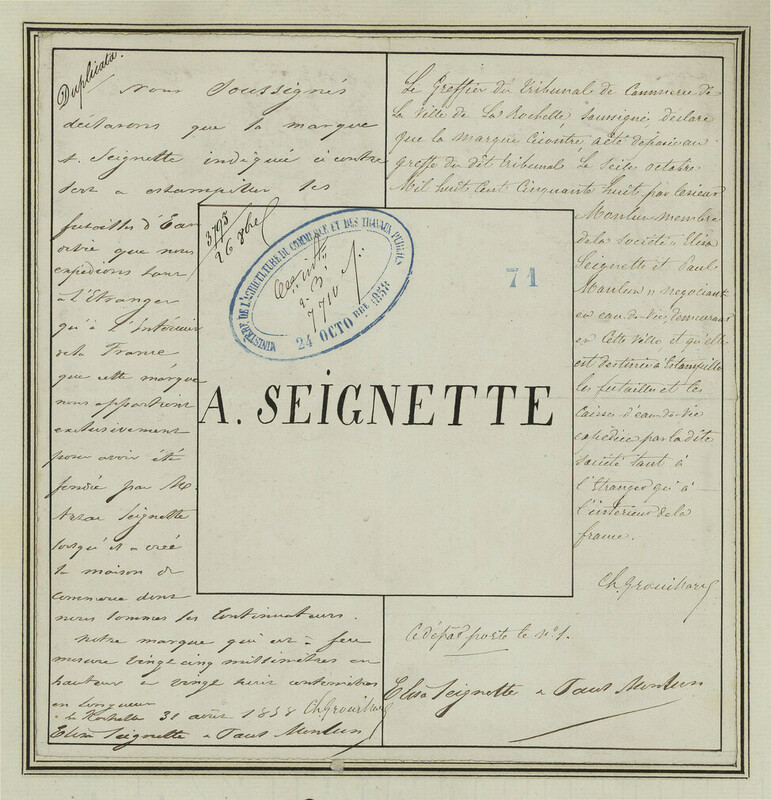 Duplicata.
Nous Soussignés
déclarons que la marque
A. Seignette indiquée ci contre
sert a estampiller les
futailles d'Eau
de vie que nous
expédions tant
a l'Étranger
qu'à l'Intérieur
de la France
que cette marque
nous appartient
exclusivement
pour avoir été
fondée par M.
Seignette
lorsqu'il a créé
la maison de
commerce dont
nous sommes les Continuateurs.
Notre marque qui est à feu
mesure vingt cinq millimètres en
hauteur & vingt huit centimètres
en longueur
La Rochelle 31 août 1858
Elisa Seignette & Paul Monlun
3795
26 8bre
MINISTÈRE DE L'AGRICULTURE DU COMMERCE ET DES TRAVAUX PUBLICS
24 OCTOBRE 1858
71
A. SEIGNETTE
Le Greffier du Tribunal de Commerce de
La Ville de La Rochelle, soussigné, déclare
Que la marque Ci contre, a été déposée au
greffe du dit tribunal Le Seize octobre
Mil huit Cent Cinquante huit, par le sieur
Monlun membre
de la Société " Elisa
Seignette et Paul
Monlun " négociants
en eau de vie, demeurant
en Cette Ville et qu'elle
est destinée à Estampiller
les futailles et les
Caisses d'eau de vie
expédiées par la dite
société tant à
l'Étranger qu'à
l'intérieur de la
france.
Ch. Grouillard
Ce dépôt porte le N° 1.
Elisa Seignette & Paul Monlun